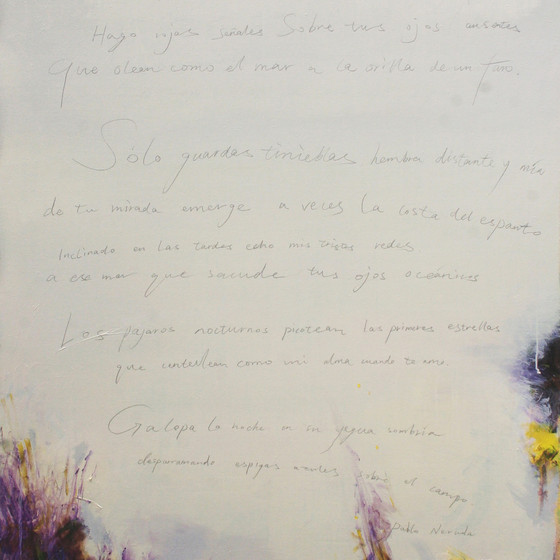 Hago rojas señales sobre tus ojos ausentes
que olean como el mar a la orilla de un faro.
Sólo guardas tinieblas hembra distante y mía
de tu mirada emerge a veces la costa del espanto
Inclinado en las tardes echo mis tristes redes
a ese mar que sacude tus ojos oceánicos
Los pájaros nocturnos picotean las primeras estrellas
que centellean como mi alma cuando te amo.
Galopa la noche en su yegua sombría
desparramando espigas azules sobre el campo
Pablo Neruda